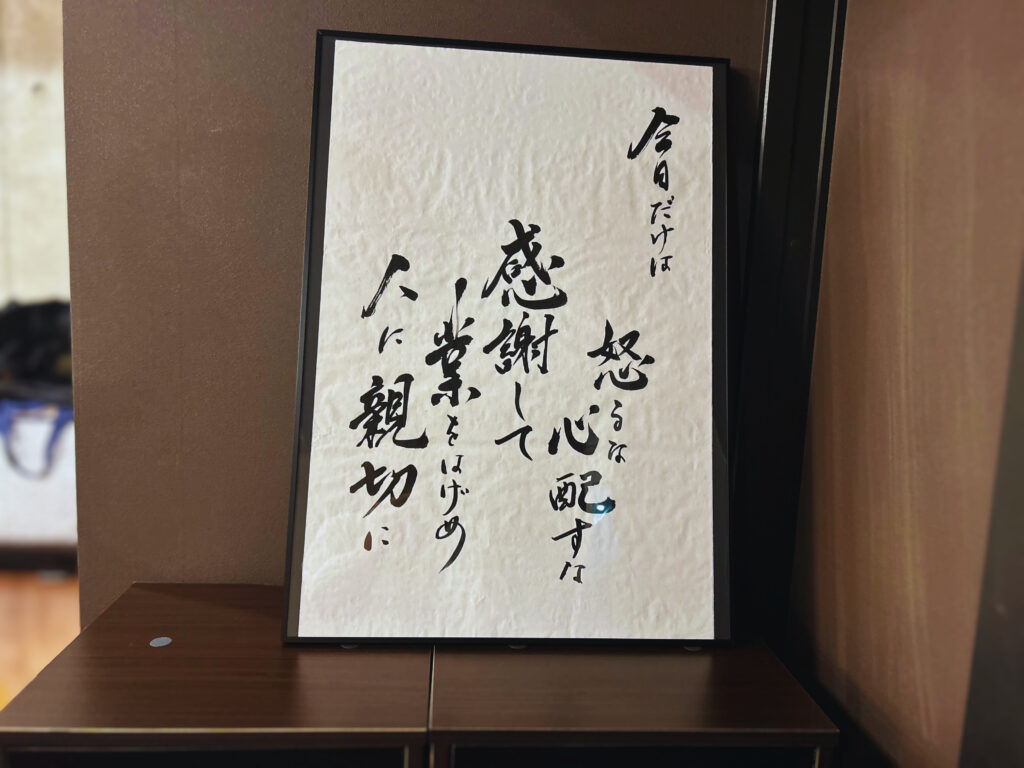 今日だけは
怒るな
心配すな
感謝して
業をはげめ
人に親切に